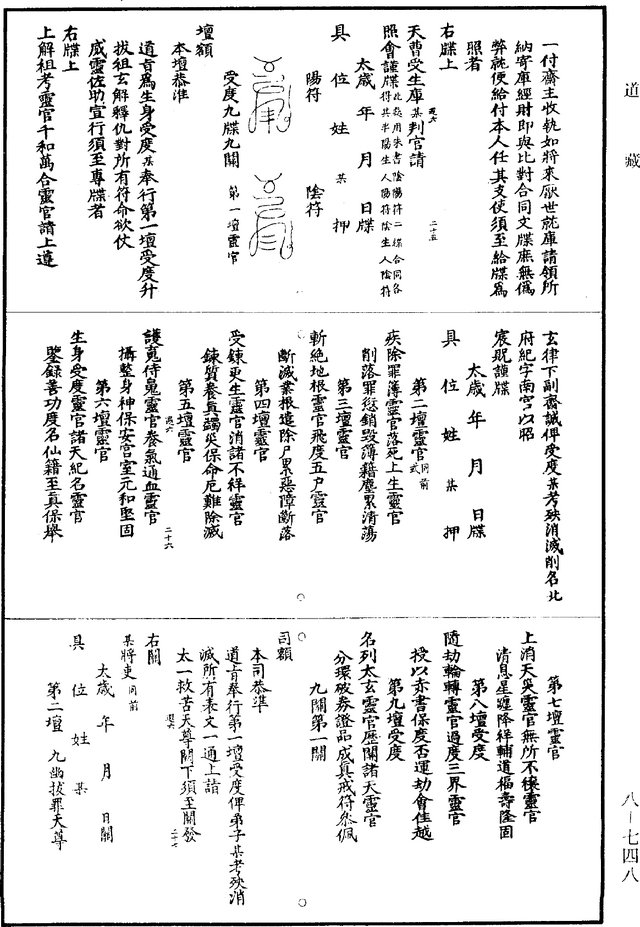 道藏
八—七四八
一付齋主收執如將來厭世就庫請領所
納寄庫經財即與比對合同文牒庶無僞
弊就便給付本人任其支使須至給牒爲
照者
右牒上
天曹受生庫某判官請
照會謹牒
此疑用朱書陰陽符二牒合同各
符其半陽生人陽符陰生人陰符
二十五
太歲 年 月 日牒
具 位 姓 某 押
陽符 陰符
受度九牒九關 第一壇靈官
壇額
本壇恭准
道旨爲生身受度某奉行第一壇受度升
拔祖玄解釋仇對所有符命欲仗
威靈佐助宣行須至專牒者
右牒上
上解祖考靈官千和萬合靈官請上遵
玄律下副齋誠俾受度某考殃消滅削名北
府紀字南宮以昭
宸貺謹牒
太歲 年 月 日牒
具 位 姓 某 押
第二壇靈官 同前式
疾除罪簿靈官落死上生靈官
削落罪愆銷毀簿籍塵累清蕩
第三壇靈官
斬絶地根靈官飛度五户靈官
斷滅業根進除尸累惡障斷落
第四壇靈官
受鍊更生靈官消諸不祥靈官
鍊質養真蠲災保命厄難除滅
第五壇靈官
護魂侍魄靈官養氣通血靈官
二十六
攝整身神保安宮室元和堅固
第六壇靈官
生身受度靈官諸天紀名靈官
鑒録善功度名仙籍至真保舉
第七壇靈官
上消天災靈官無所不禳靈官
消息星躔降祥輔道福壽隆固
第八壇受度
隨劫輪轉靈官過度三界靈官
授以赤書保度否運劫會佳越
第九壇受度
名列太玄靈官歷關諸天靈官
分環破券證品成真戒符參佩
九關第一關
司額
本司恭準
道旨奉行第一壇受度俾弟子某考殃消
滅所有表文一通上請
太一救苦天尊闕下須至關發
二十七
右關
某將吏 同前
太歲 年 月 日關
具 位 姓 某
第二壇 九幽拔罪天尊